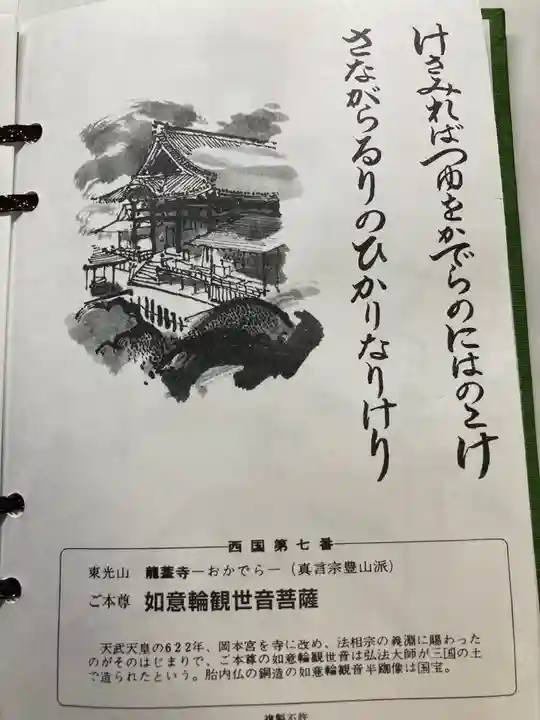 けさみればつゆをかでらのにはのこけ
さながらるりのひかりなりけり
西国第七番
東光山 龍蓋寺―おかでら―（真言宗豊山派）
ご本尊 如意輪観世音菩薩
天武天皇の622年、岡本宮を寺に改め、法相宗の義淵に賜わった
のがそのはじまりで、ご本尊の如意輪観世音は弘法大師が三国の土
で造られたという。胎内仏の銅造の如意輪観音半跏像は国宝。
複製不許